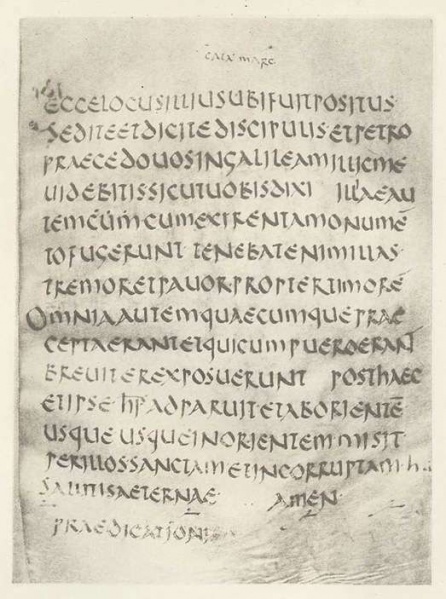 CATA MARC
ECCELOCUSILLIUSUBIFUITPOSITUS
SEDITEETDICITEDISCIPULISETPETRO
PRAECEDOUOSINGALILEAMILLICME
UIDEBITISSICUTUOBISDIXI ILLAEAU
TEMCUMCUMEXIRENTAMONUMĒ
TOFUGERUNT TENEBATENIMILLAS
TREMORETPAUORPROPTERTIMORĒ
OMNIAAUTEMQUAECUMQUEPRAE
CEPTAERANTETQUICUMPUEROERANT
BREUITEREXPOSUERUNT POSTHAEC
ETIPSE ADPARUITETABORIENTĒ
USQUE USQUEINORIENTEM MISIT
PERILLOSSANCTAMETINCORRUPTAM h·
SALUTISAETERNAE AMEN
PRAEDICATIONIS